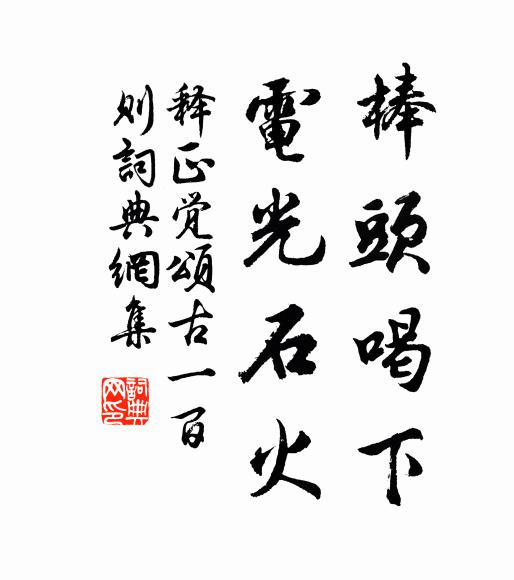 棒頭喝下
電光石火
释正觉頌古一百
则詞典網集
詞典网印